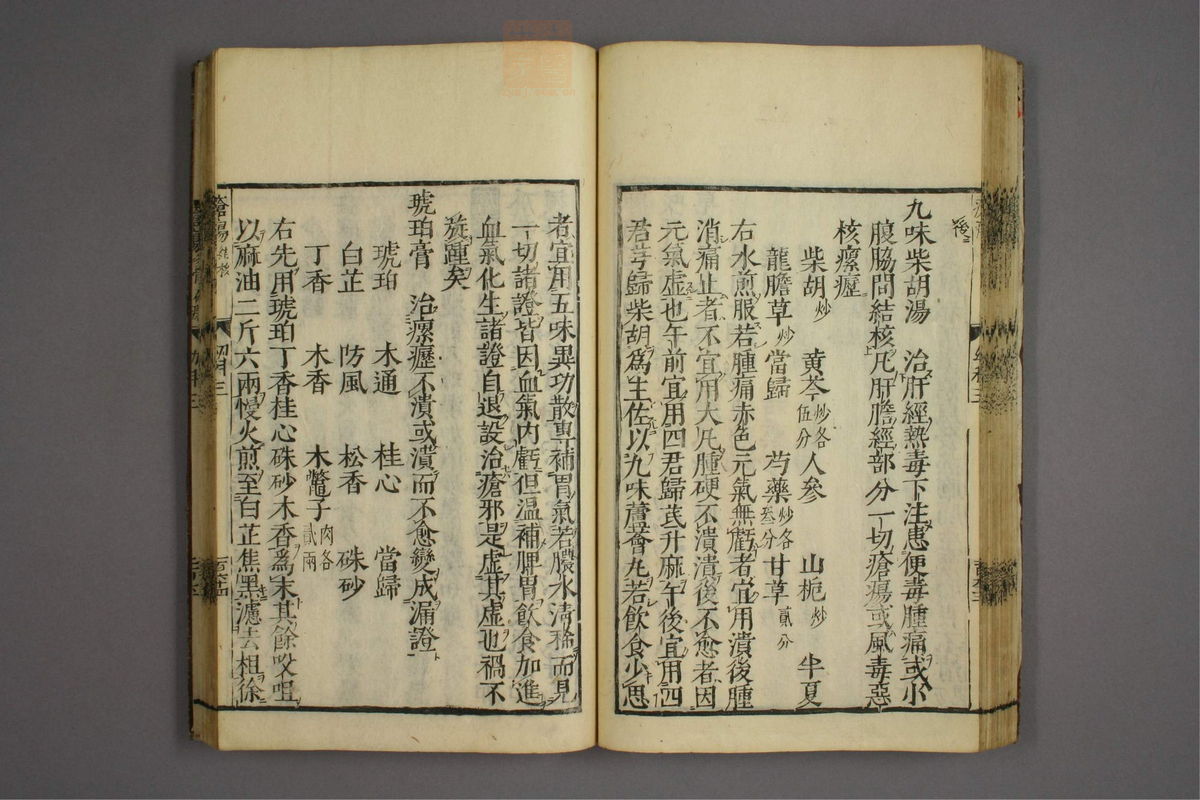 九味柴胡湯　治肝經熱毒下注患便毒腫痛或小
腹脇間結核凢肝膽經部分一切瘡瘍或風毒惡
核瘰癧
柴胡炒　黄芩炒各伍分　人參　山梔炒　半夏
龍膽草炒　當歸　芍藥炒各叁分　甘草貳分
右水煎服若腫痛赤色元氣無虧者宜用潰後腫
消痛止者不宜用大凢腫硬不潰潰後不愈者因
元氣虚也午前宜用四君歸芪升麻午後宜用四
君芎歸柴胡爲主佐以九味蘆薈丸若飲食少思
者宜用五味異功散專補胃氣若膿水清稀而見
一切諸證皆因血氣内虧但温補脾胃飲食加進
血氣化生諸證自退設治瘡邪是虚其虚也禍不
旋踵矣
琥珀膏　治瘰癧不潰或潰而不愈變成漏證
琥珀　木通　桂心　當歸
白芷　防風　松香　硃砂
丁香　木香　木鱉子肉各貳兩
右先用琥珀丁香桂心硃砂木香爲末其餘㕮咀
以麻油二斤六兩慢火煎至白芷焦黑濾去柤徐